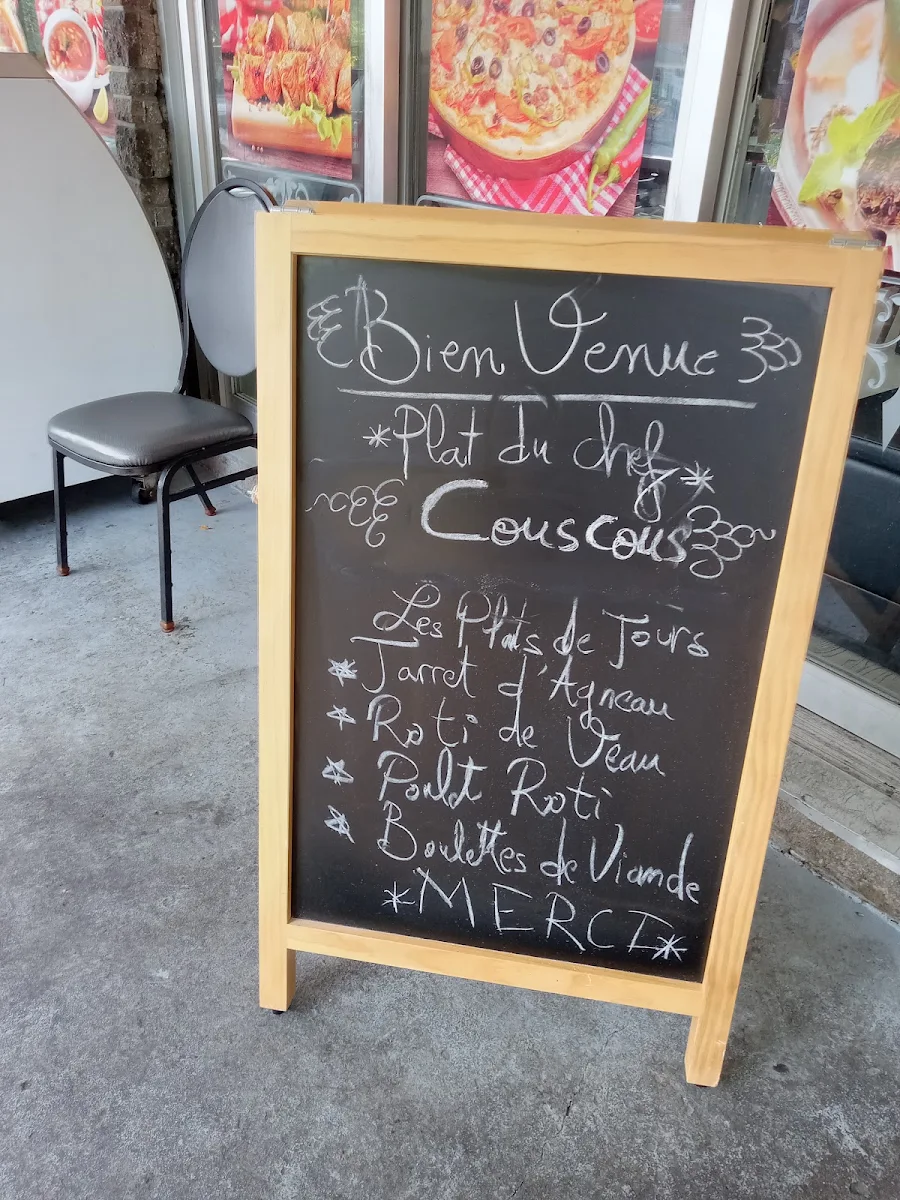 Bien Venue
*Plat du chef*
Couscous
Les Plats de Jours
* Jarret d'Agneau
* Roti de Veau
* Poulet Roti
* Boulettes de Viande
*MERCI*